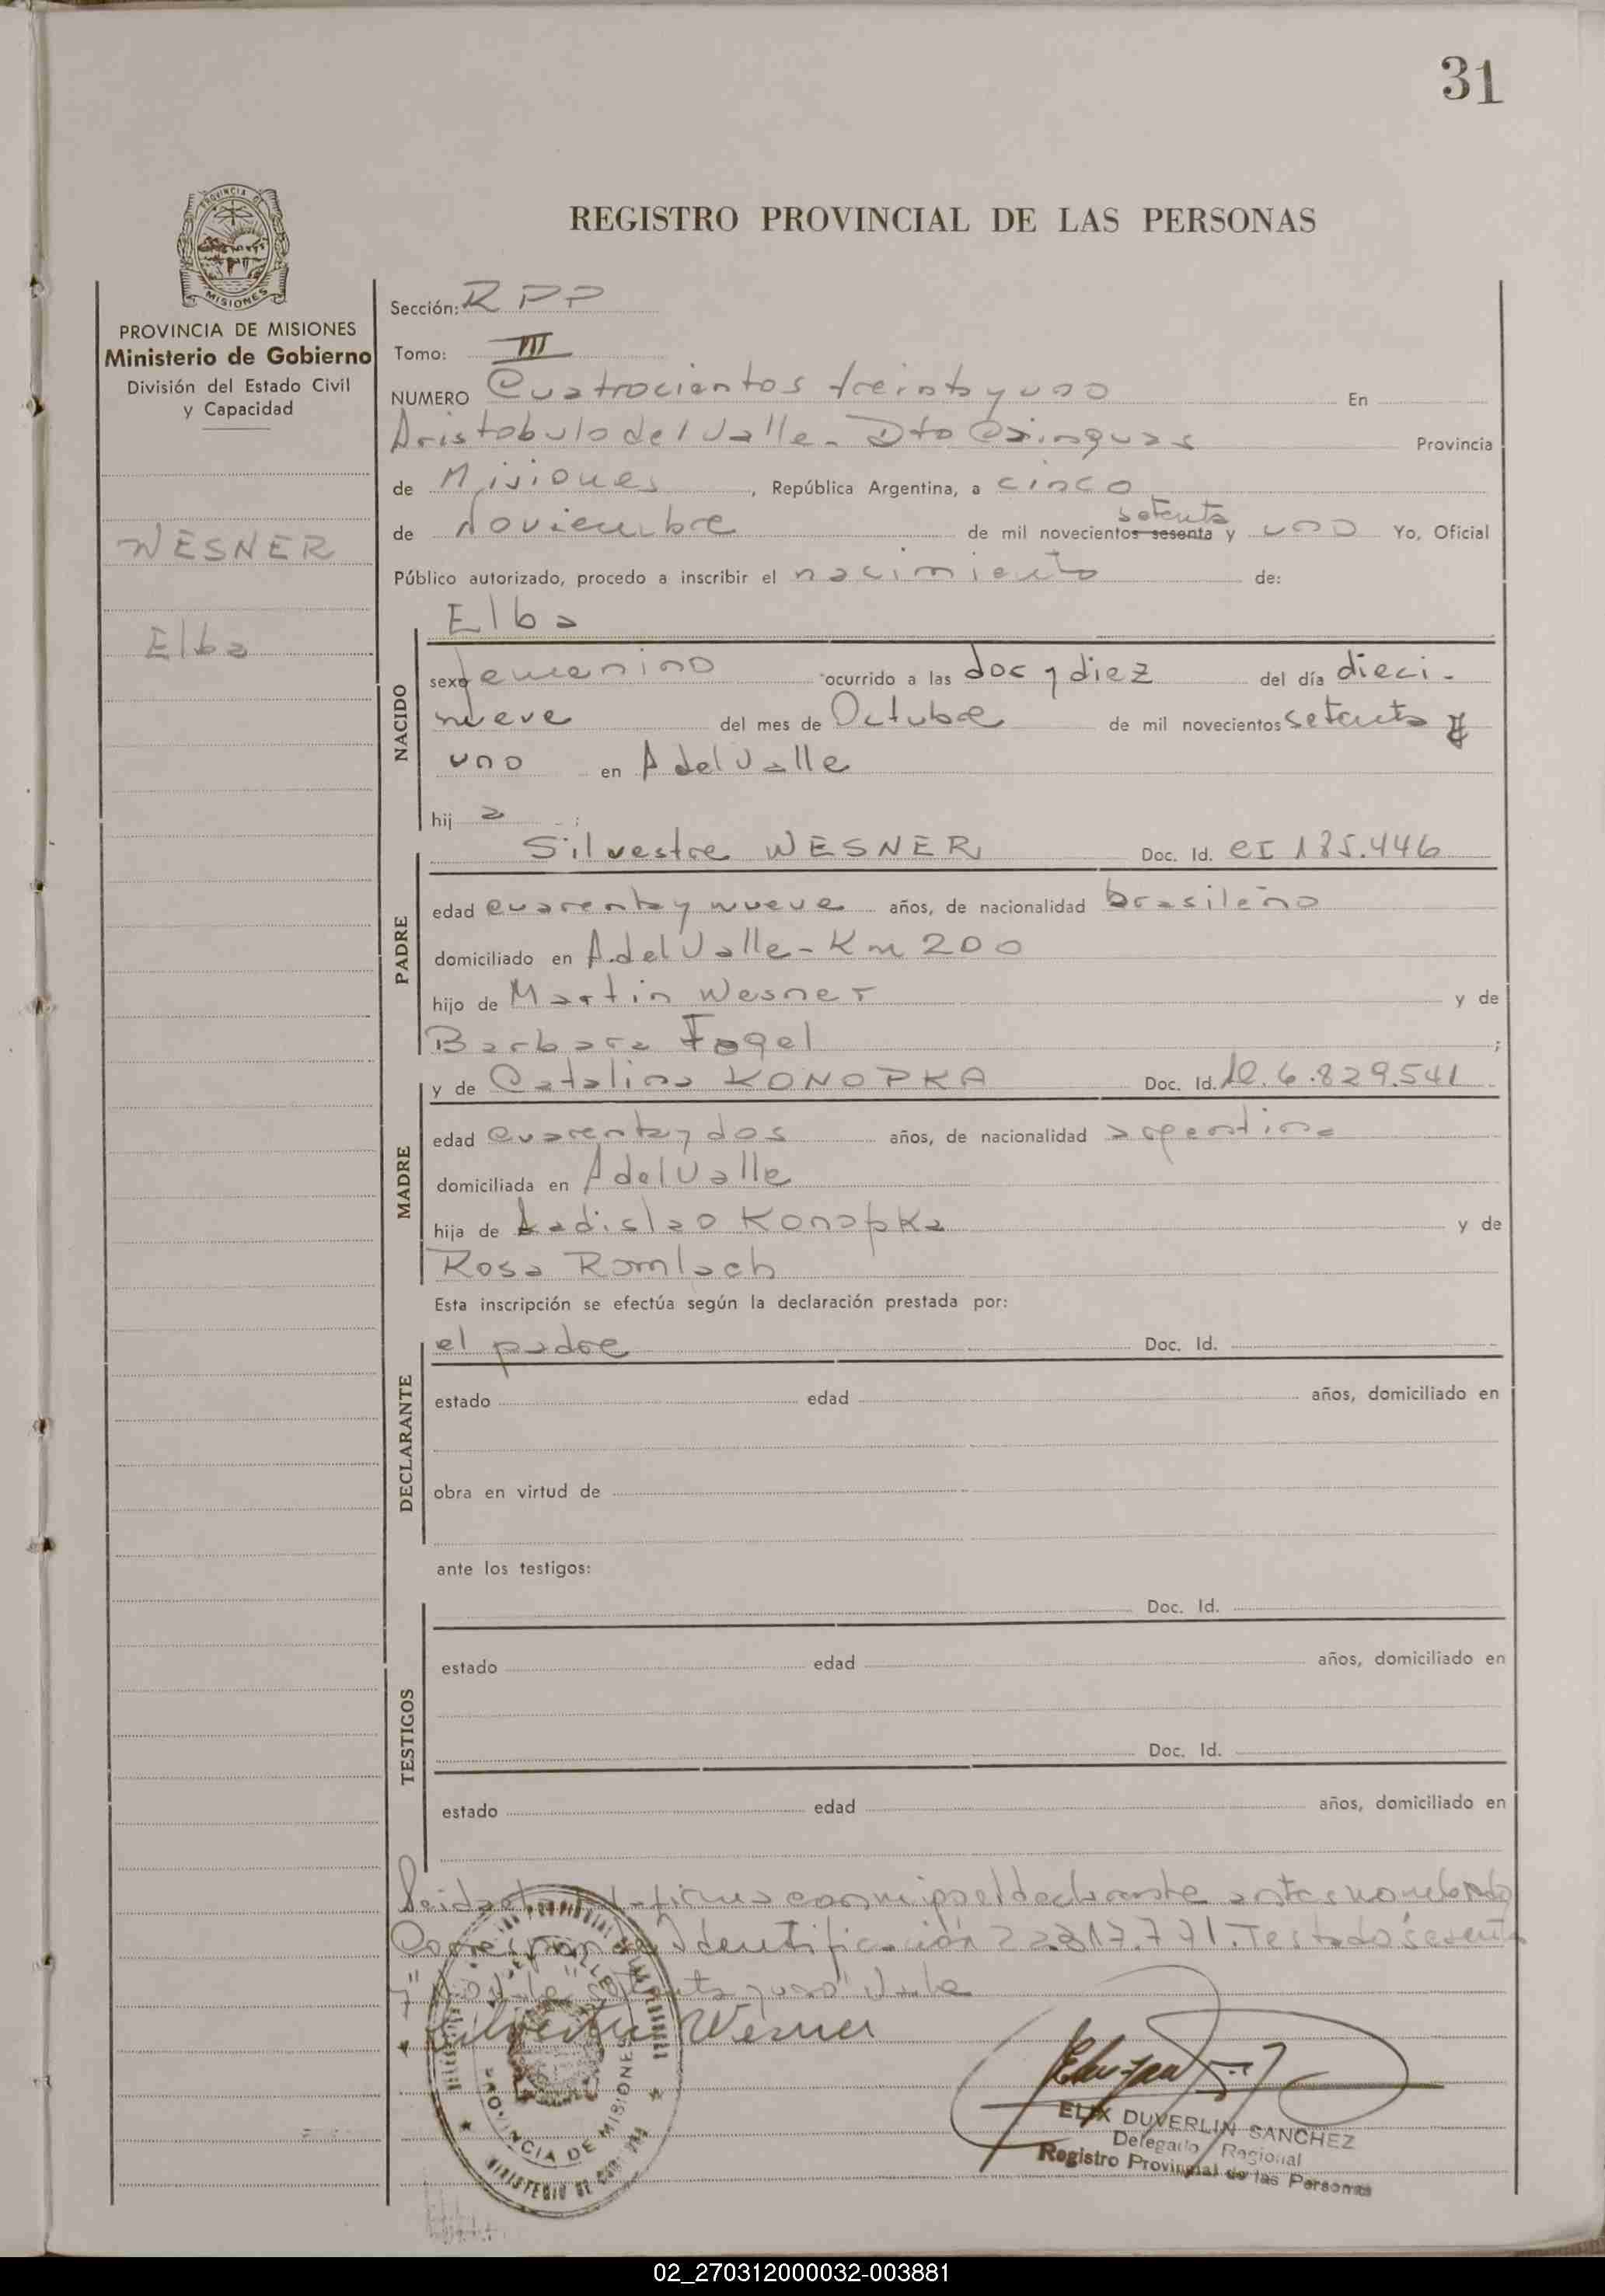 31
PROVINCIA DE
MISIONES
REGISTRO PROVINCIAL DE LAS PERSONAS
PROVINCIA DE MISIONES
Ministerio de Gobierno
División del Estado Civil
y Capacidad
WESNER
Elba
Sección: RPP
Tomo: III
NUMERO Cuatrocientos treinta y uno En
Aristobulo del Valle - Dto Cainguas Provincia
de Misiones, República Argentina, a cinco
setenta
de Noviembre de mil novecientos sesenta y uno Yo, Oficial
Público autorizado, procedo a inscribir el nacimiento de:
Elba
NACIDO
sexo femenino ocurrido a las doc y diez del día dieci-
nueve del mes de Octubre de mil novecientos setenta y
uno en A del Valle
hij a :
PADRE
Silvestre WESNER Doc. Id. CI 185.446
edad cuarenta y nueve años, de nacionalidad brasileño
domiciliado en A. del Valle - Km 200
hijo de Martin Wesner y de
Barbara Fogel ;
MADRE
y de Catalina KONOPKA Doc. Id. 6.829.541
edad cuarenta y dos años, de nacionalidad argentina
domiciliada en A del Valle
hija de Ladislao Konopka y de
Rosa Romlach
Esta inscripción se efectúa según la declaración prestada por:
DECLARANTE
el padre Doc. Id.
estado edad años, domiciliado en
obra en virtud de
ante los testigos:
TESTIGOS
Doc. Id.
estado edad años, domiciliado en
Doc. Id.
estado edad años, domiciliado en
Leida el acta la firma conmigo el declarante
Corresponde Identificación 22.817.771. Testado "sesenta
y" setenta y uno" Vale
Silvestre Wesner
PROVINCIA DE MISIONES
ELIX DUVERLIN SANCHEZ
Delegado Regional
Registro Provincial de las Personas
02_270312000032-003881